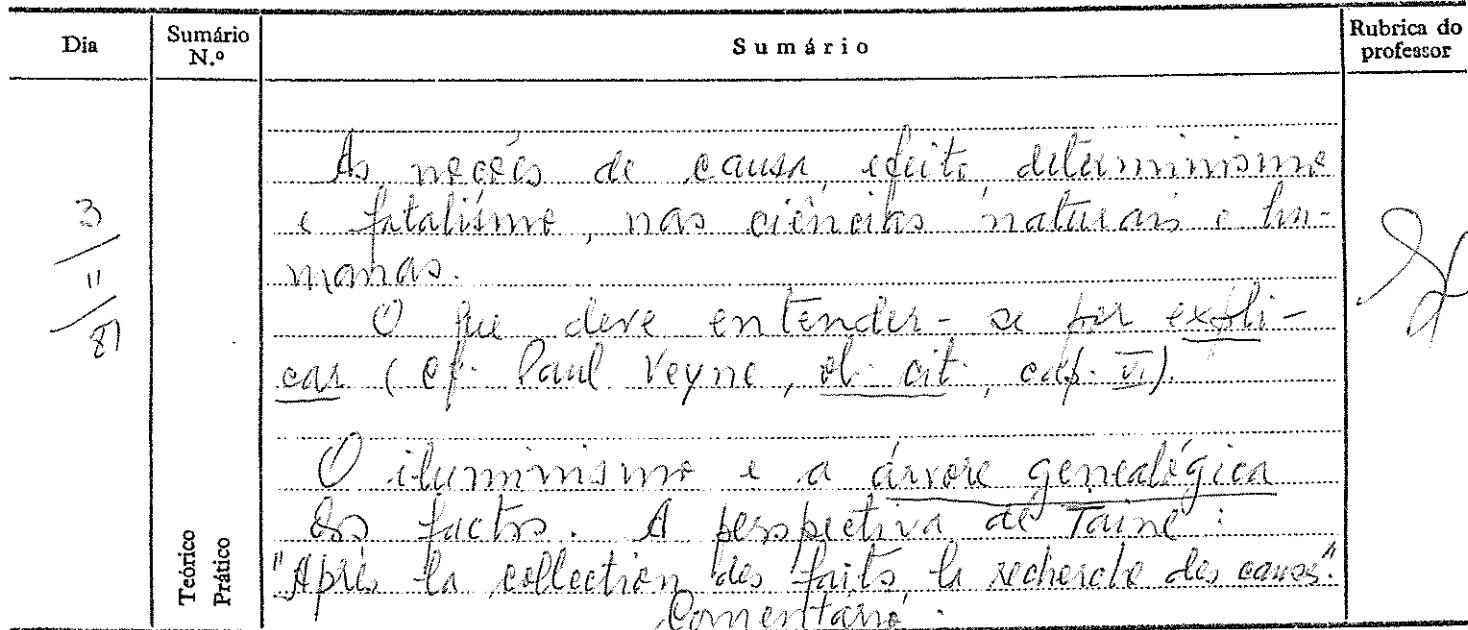 Dia
Sumário N.º
Sumário
Rubrica do professor
3/11/81
As noções de causa, efeito, determinismo
e fatalismo, nas ciências naturais e hu-
manas.
O que deve entender-se por expli-
car (cf. Paul Veyne, ob. cit., cap. VI).
O iluminismo e a árvore genealógica
dos factos. A perspectiva de Taine:
"Après la collection des faits, la recherche des causes".
Comentário.
Teórico
Prático